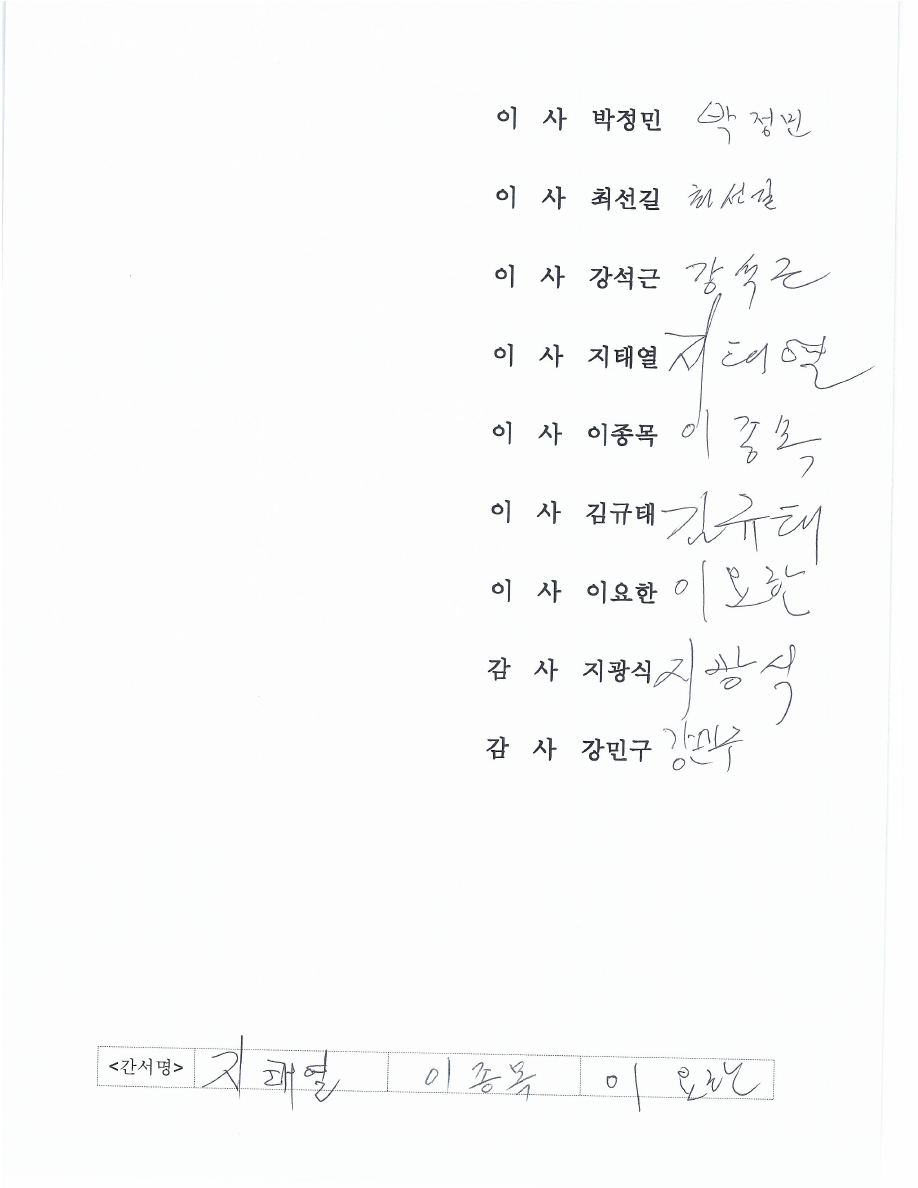 이 사 박정민 박정민
이 사 최선길 최선길
이 사 강석근 강석근
이 사 지태열 지태열
이 사 이종목 이종목
이 사 김규태 김규태
이 사 이요한 이요한
감 사 지광식 지광식
감 사 강민구 강민구
<간서명> 지태열 이종목 이요한